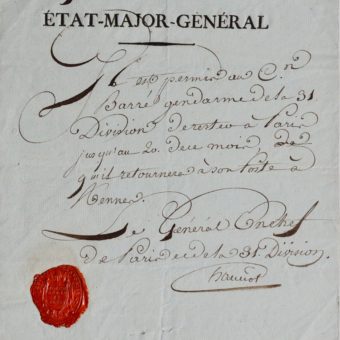 ÉTAT-MAJOR-GÉNÉRAL
Il est permis au C.en
Barré gendarme de la 31
Division de rester à Paris
jusqu'au 20 de ce mois
qu'il retournera à son Poste à
Rennes.
Le Général en chef
de Paris et de la 31 Division.